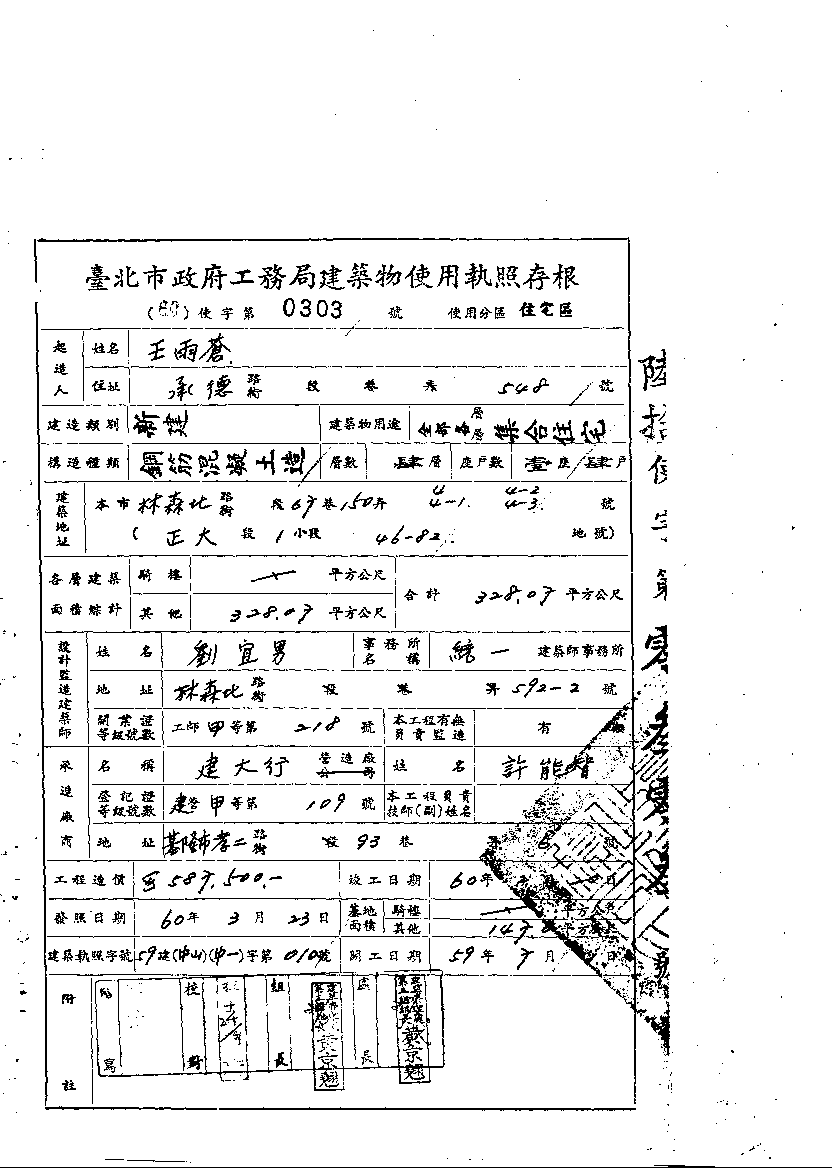 臺北市政府工務局建築物使用執照存根
(60)使字第 0303 號 使用分區 住宅區
起造人 姓名 王雨蒼
住址 承德 路街 段 巷 弄 548 號
建造類別 新建 建築物用途 全部各層層 集合住宅
構造種類 鋼筋混凝土造 層數 肆層 座戶數 壹座 肆戶
建築地址 本市 林森北 路街 段 67 巷 150 弄 4 4-1 4-2 4-3 號
( 正大 段 1 小段 46-82 地號)
各層建築面積綜計 騎樓 平方公尺 合計 328.07 平方公尺
其他 328.07 平方公尺
設計監造建築師 姓名 劉宜男 事務所名稱 統一 建築師事務所
地址 林森北 路街 段 巷 弄 592-2 號
開業證等級號數 工師甲等第 218 號 本工程有無負責監造 有
承造廠商 名稱 建大行 營造廠公司 姓名 許能
登記證等級號數 建營甲等第 109 號 本工程負責技師(副)姓名
地址 路街 段 93 巷 號
工程造價 587,500.- 竣工日期 60年 日
發照日期 60年 3月 23日 基地面積 騎樓 平方公尺
其他 147
建築執照字號 59建(中山)(中一)字第 010號 開工日期 59年 7月 日
附註 校對 組長 黃京 處長 黃京
陸拾使字第零叁零叁號